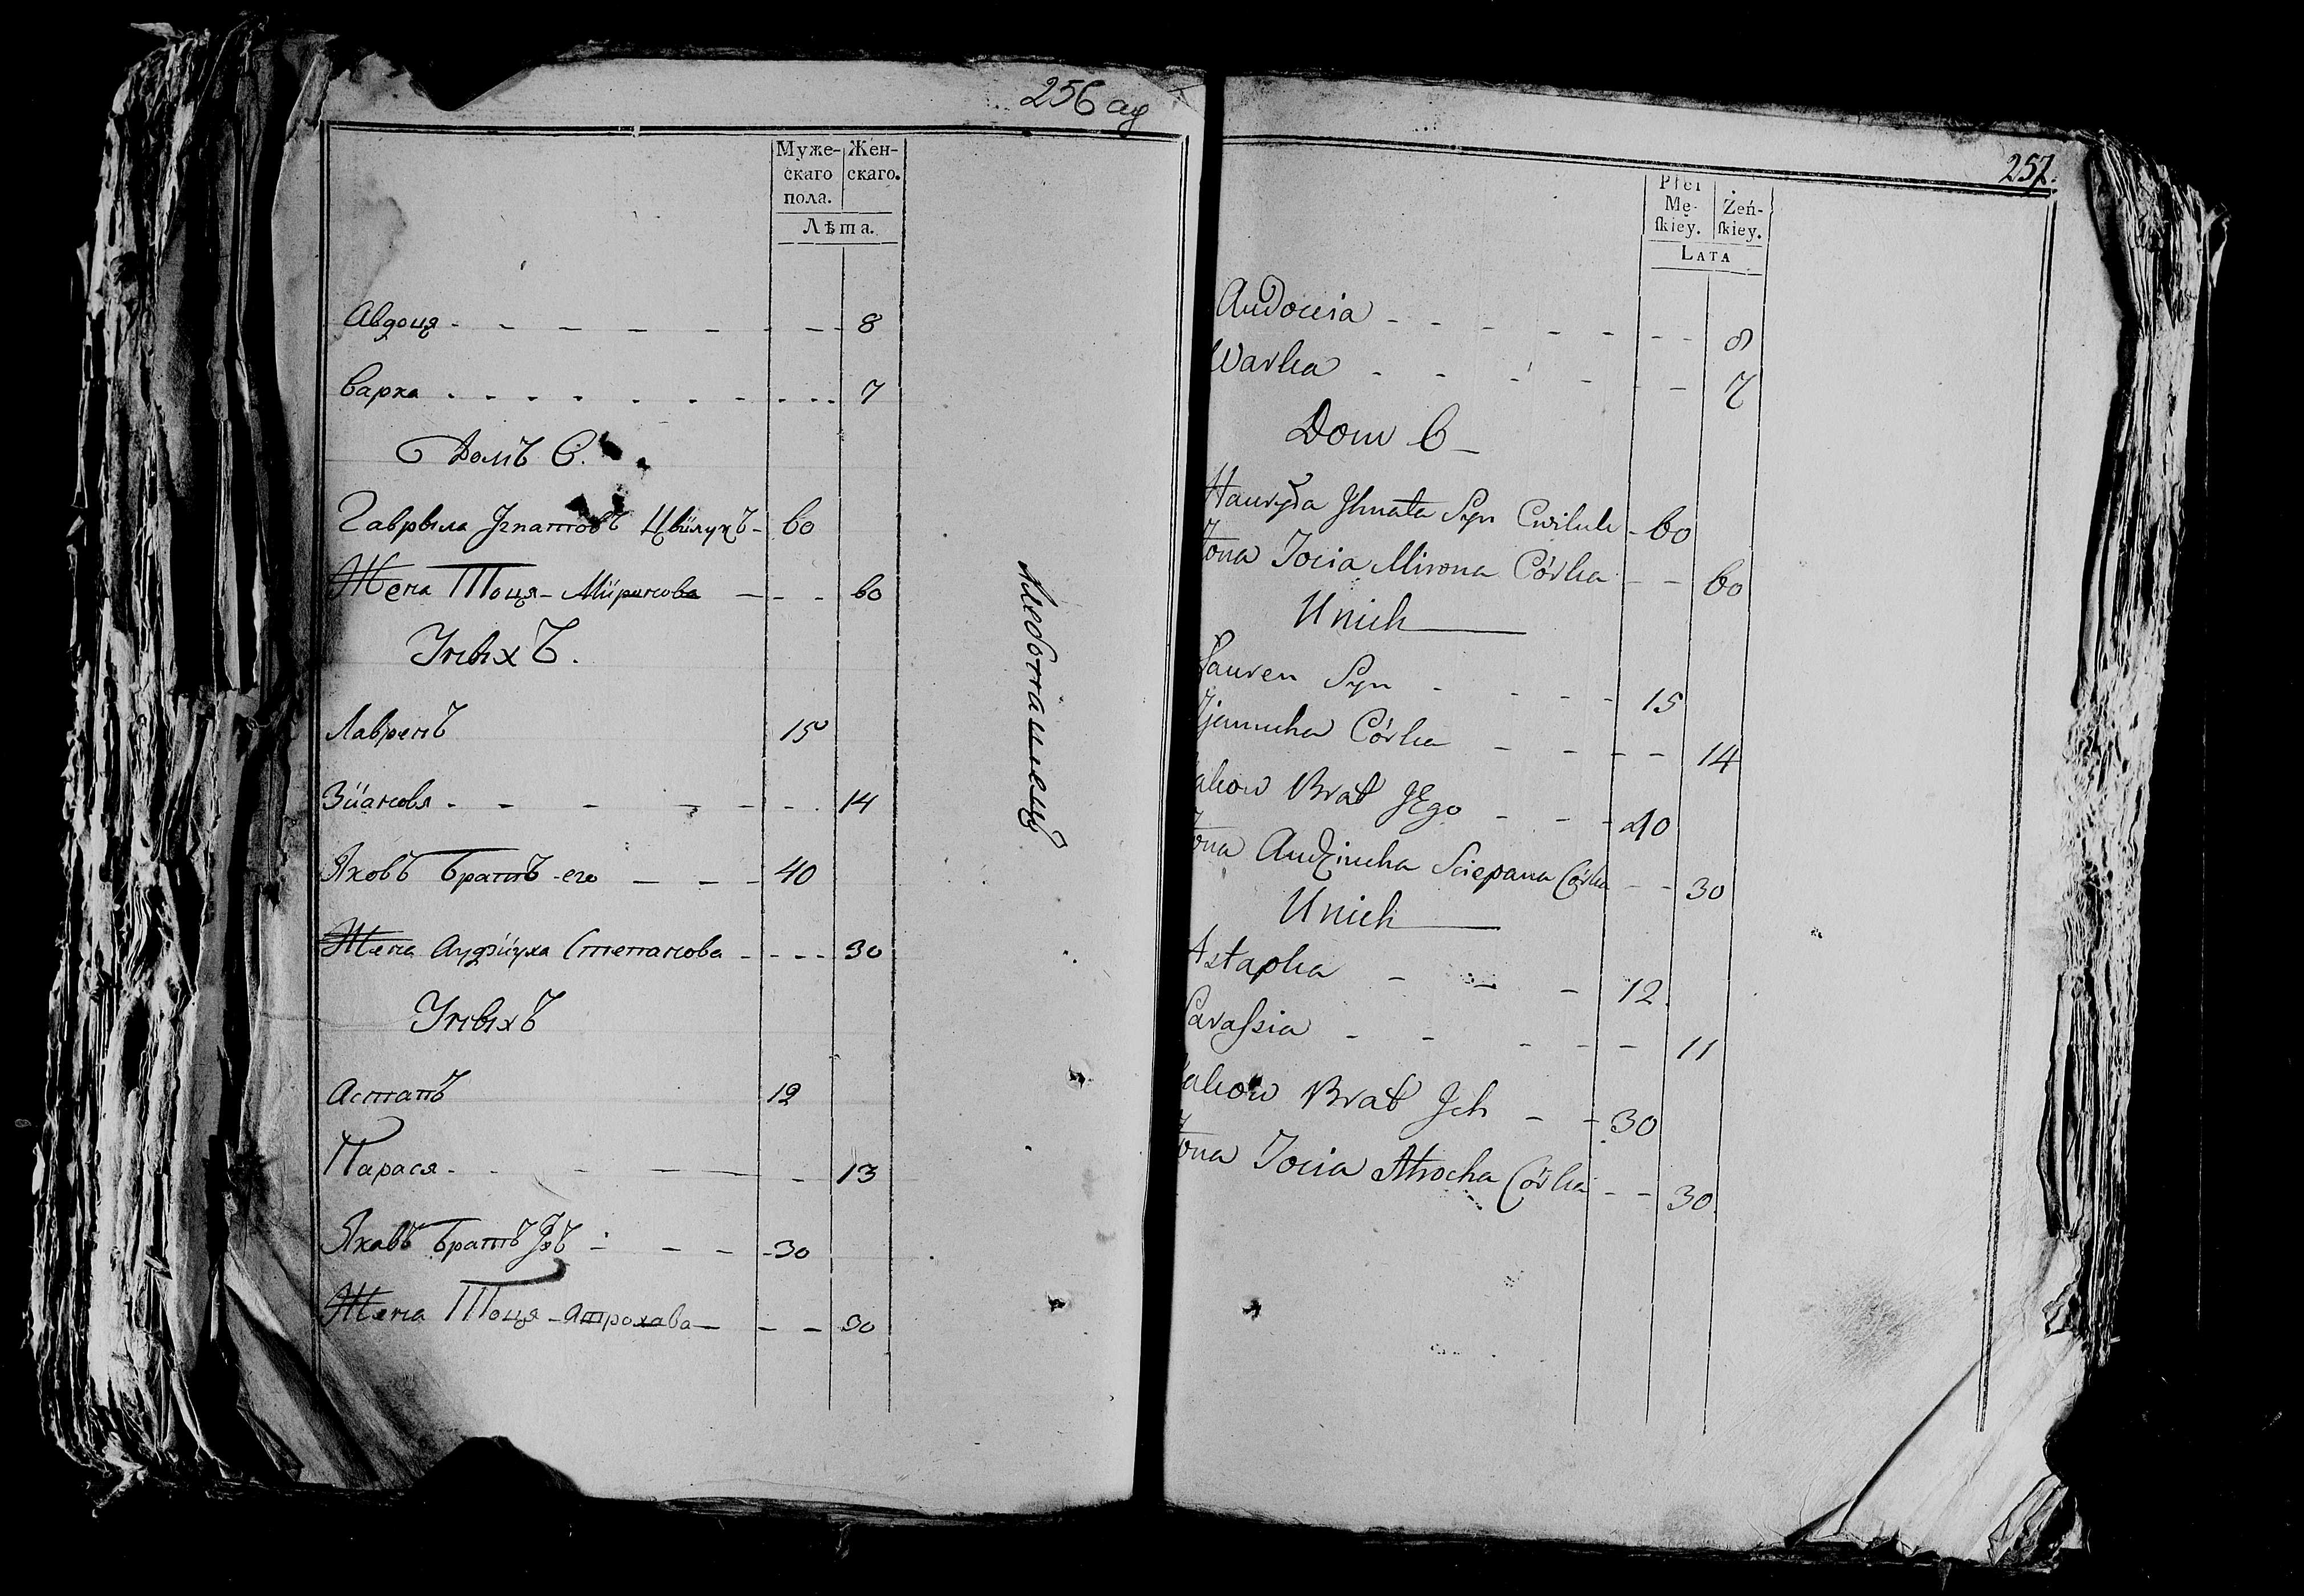 256 ад
Муже- Жен-
скаго скаго.
пола.
Лѣта.
Авдоця 8
Варка 7
Домъ 6.
Гаврыла Ігнатовъ Цвилукъ 60
Жена Тоця Миронова 60
У ныхъ.
Лавренъ 15
14
Яковъ братъ его 40
Жена Степанова 30
У ныхъ
Астапъ 12
Парася 13
Яковъ братъ Ихъ 30
Жена Тоця Атрохава 30
257.
Płci
Mę- Żeń-
skiey. skiey.
LATA
Audocia 8
Warka 7
Dom 6
Hauryła Jhnata Syn Cwiluk 60
żona Tocia Mirona Córka 60
U nich
Łauren Syn 15
Córka 14
akow Brat JEgo 40
żona Audziucha Sciepana Córka 30
U nich
Astapka 12.
Parassia 11
akow Brat Jch 30
żona Tocia Atrocha Córka 30.